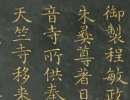 御製程敏政
朱彝尊者日
音寺所供奉
天竺寺移来